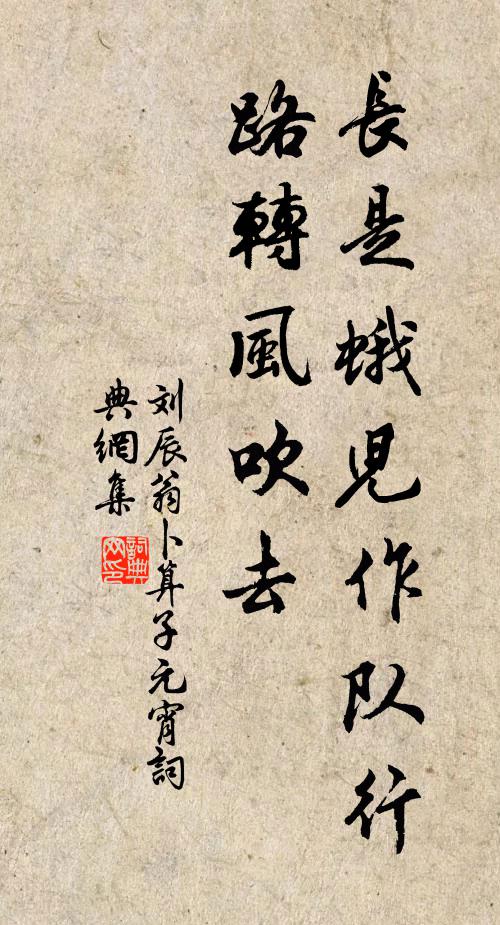 長是蛾兒作队行
路轉風吹去
刘辰翁卜算子元宵詞
典網集
詞典
网印